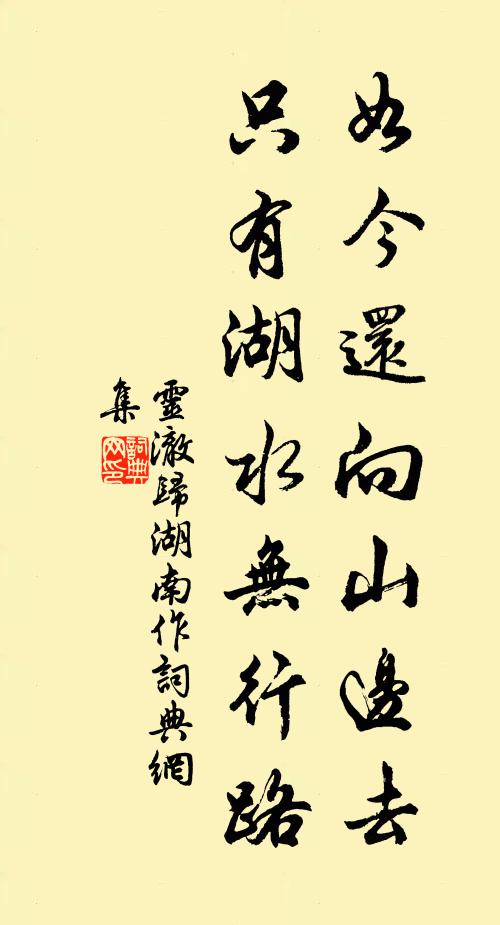 如今還向山邊去
只有湖水無行路
靈澈歸湖南作詞典網
集
詞典網印